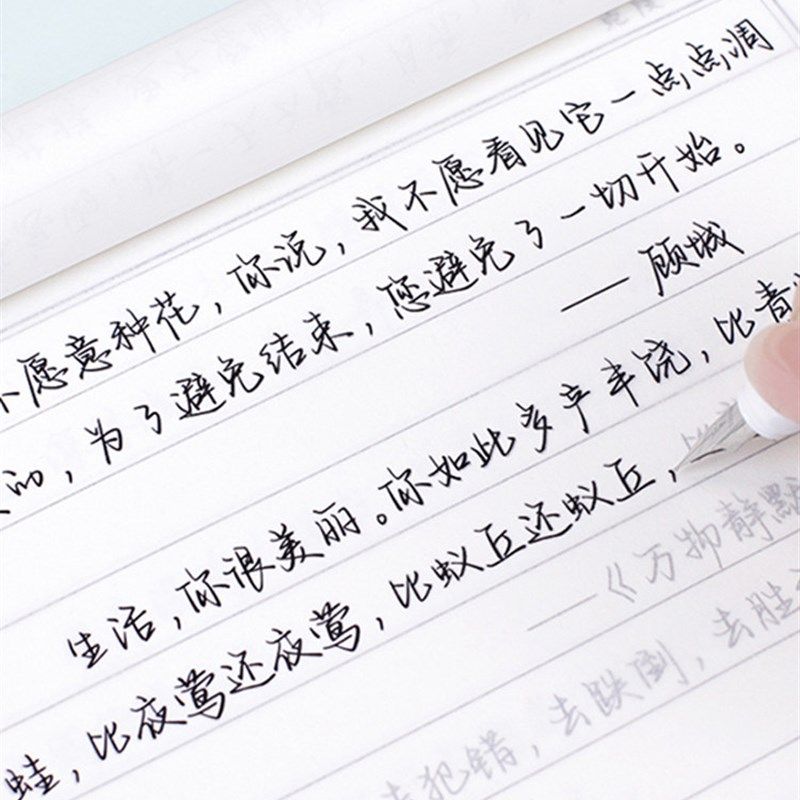 不愿意种花，你说，我不愿看见它一点点凋
的，为了避免结束，您避免了一切开始。
——顾城
生活，你很美丽。你如此多产丰饶，比青
蛙，比夜莺还夜莺，比蚁丘还蚁丘，
——《万物静默
去犯错，去跌倒，去胜